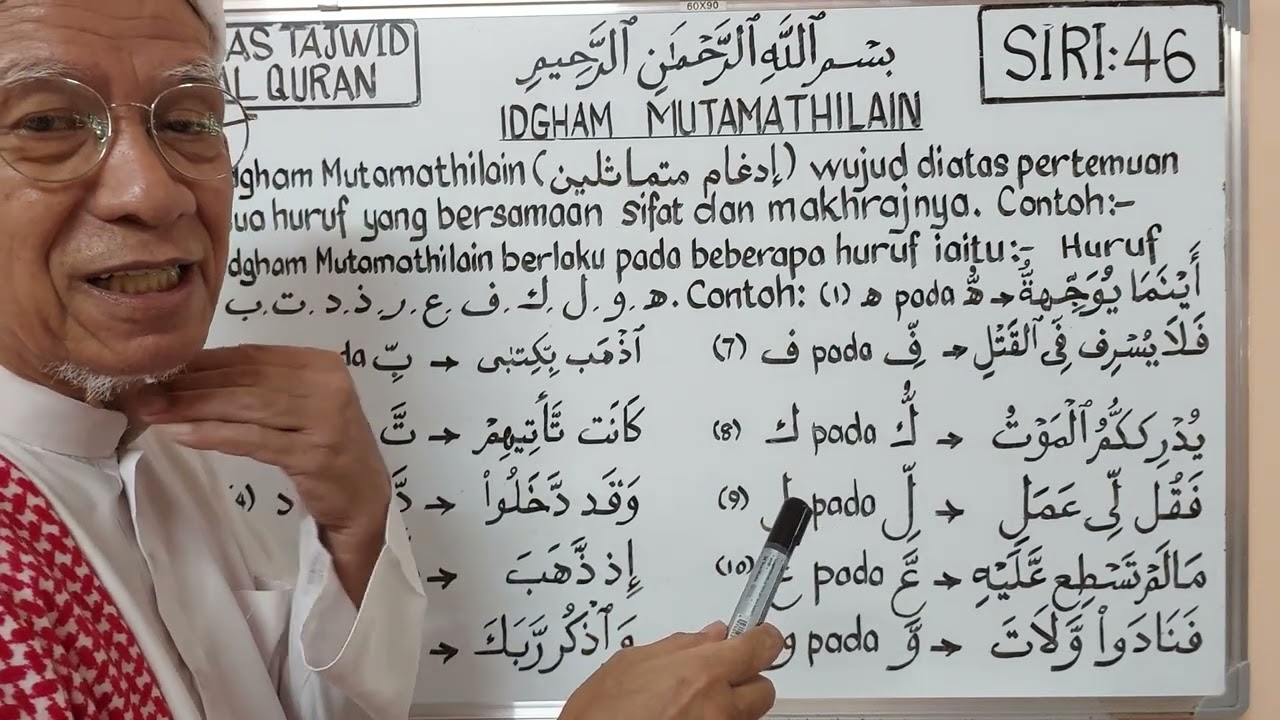 60X90
AS TAJWID
AL QURAN
بِسْمِ ٱللَّهِ ٱلرَّحْمَٰنِ ٱلرَّحِيمِ
SIRI:46
IDGHAM MUTAMATHILAIN
gham Mutamathilain (إدغام متماثلين) wujud diatas pertemuan
ua huruf yang bersamaan sifat dan makhrajnya. Contoh:-
dgham Mutamathilain berlaku pada beberapa huruf iaitu:- Huruf
ب.ت.د.ذ.ر.ع.ف.ك.ل.و.ه. Contoh: (1) ه pada هُّ → أَيْنَمَا يُوَجِّههُّ
da بِّ → ٱذْهَب بِّكِتَٰبِى (7) ف pada فِّ → فَلَا يُسْرِف فِّى ٱلْقَتْلِ
تَّ → كَانَت تَّأْتِيهِمْ (8) ك pada كُّ → يُدْرِككُّمُ ٱلْمَوْتُ
4) د دَّ → وَقَد دَّخَلُوا۟ (9) ل pada لِّ → فَقُل لِّى عَمَلِى
→ إِذ ذَّهَبَ (10) ع pada عَّ → مَا لَمْ تَسْطِع عَّلَيْهِ
→ وَٱذْكُر رَّبَّكَ و pada وَّ → فَنَادَوا۟ وَّلَاتَ